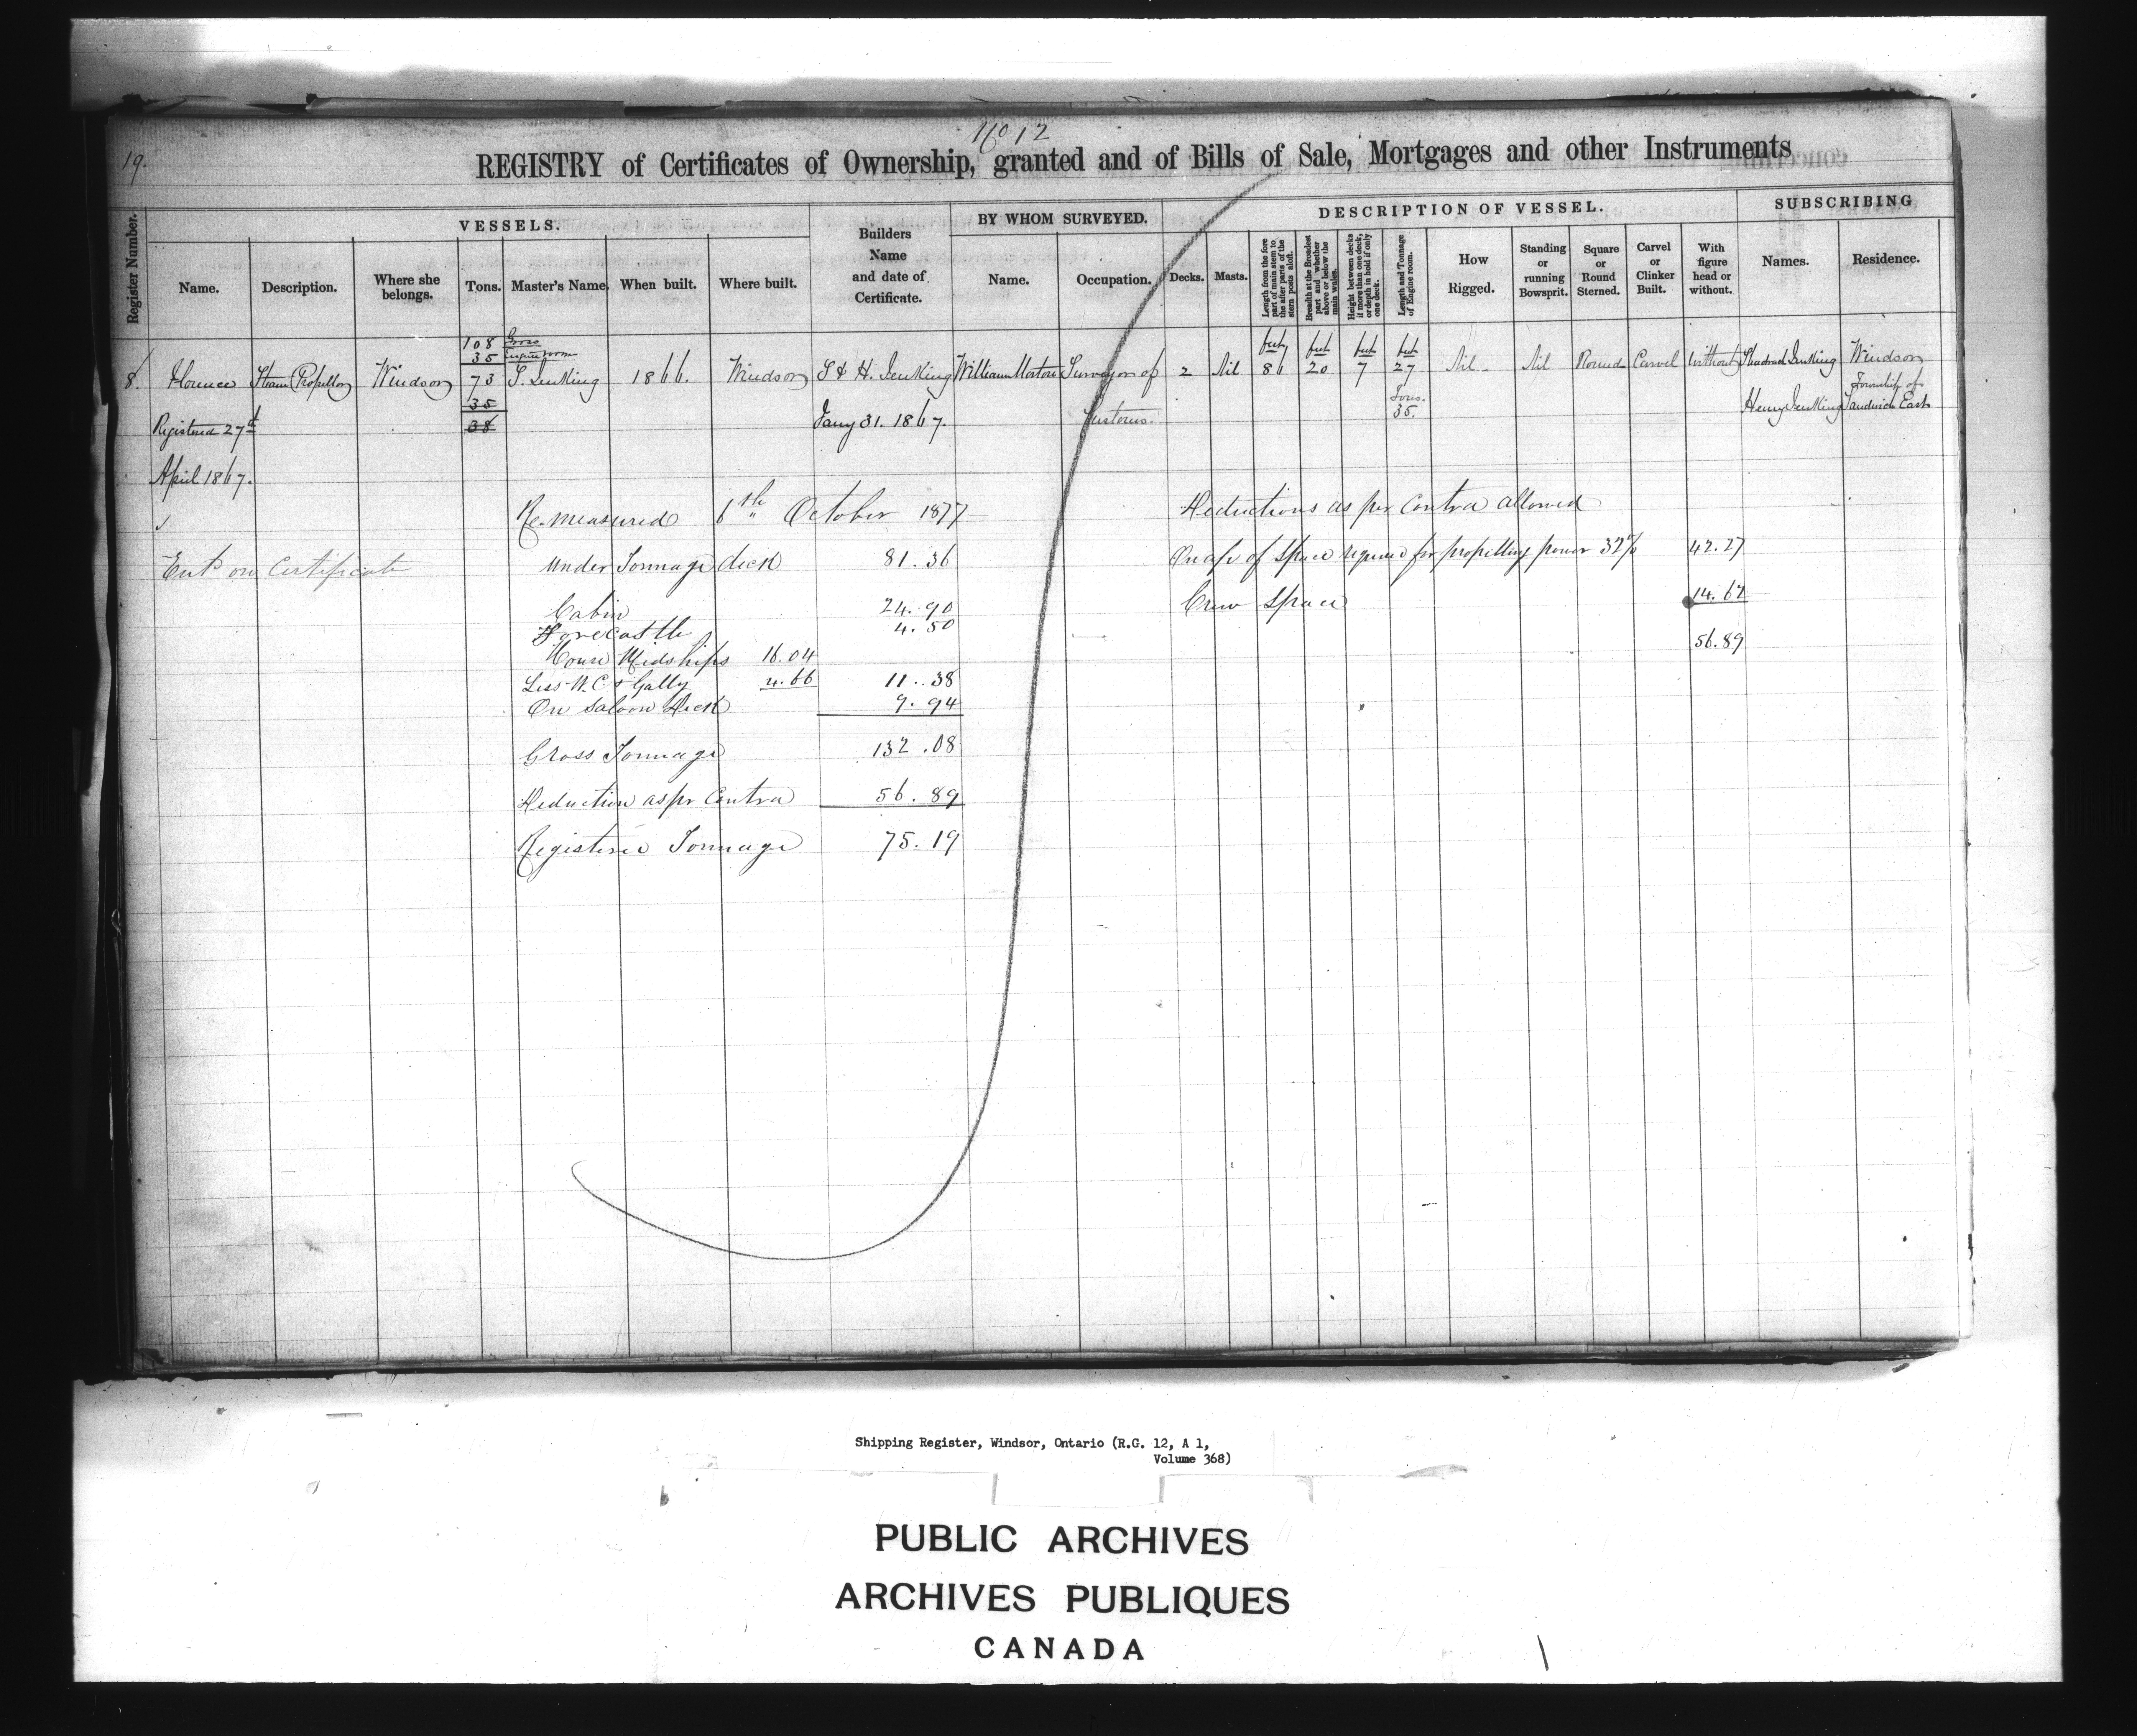 No 12
19.
REGISTRY of Certificates of Ownership, granted and of Bills of Sale, Mortgages and other Instruments
Register Number.
VESSELS.
Name.
Description.
Where she belongs.
Tons.
Master's Name.
When built.
Where built.
Builders Name and date of Certificate.
BY WHOM SURVEYED.
Name.
Occupation.
DESCRIPTION OF VESSEL.
Decks.
Masts.
Length from the fore part of main stem to the after parts of the stern posts aloft.
Breadth at the Broadest part and whether above or below the main wales.
Height between decks if more than one deck, or depth in hold if only one deck.
Length and Tonnage of Engine room.
How Rigged.
Standing or running Bowsprit.
Square or Round Sterned.
Carvel or Clinker Built.
With figure head or without.
SUBSCRIBING
Names.
Residence.
108 Gross
35 Engine room
feet feet feet feet
8. Florence Steam Propellor Windsor 73 S. Jenking 1866. Windsor S & H. Jenking William Morton Surveyor of 2 Nil 86 20 7 27 Nil Nil Round Carvel Without Shadrach Jenking Windsor
35 Tons. Township of
Registered 27th 38 Jany 31. 1867. Customs. 35. Henry Jenking Sandwich East
April 1867.
Re-measured 6th October 1877 Deductions as per contra allowed
Entd on Certificate Under Tonnage deck 81.36 On a/c of Space required for propelling power 32% 42.27
Cabin 24.90 Crew Space 14.62
Forecastle 4.50
House Midships 16.04 56.89
Less W.C & Gally 4.66 11.38
On Saloon Deck 9.94
Gross Tonnage 132.08
Deduction as pr Contra 56.89
Registered Tonnage 75.19
Shipping Register, Windsor, Ontario (R.G. 12, A 1,
Volume 368)
PUBLIC ARCHIVES
ARCHIVES PUBLIQUES
CANADA